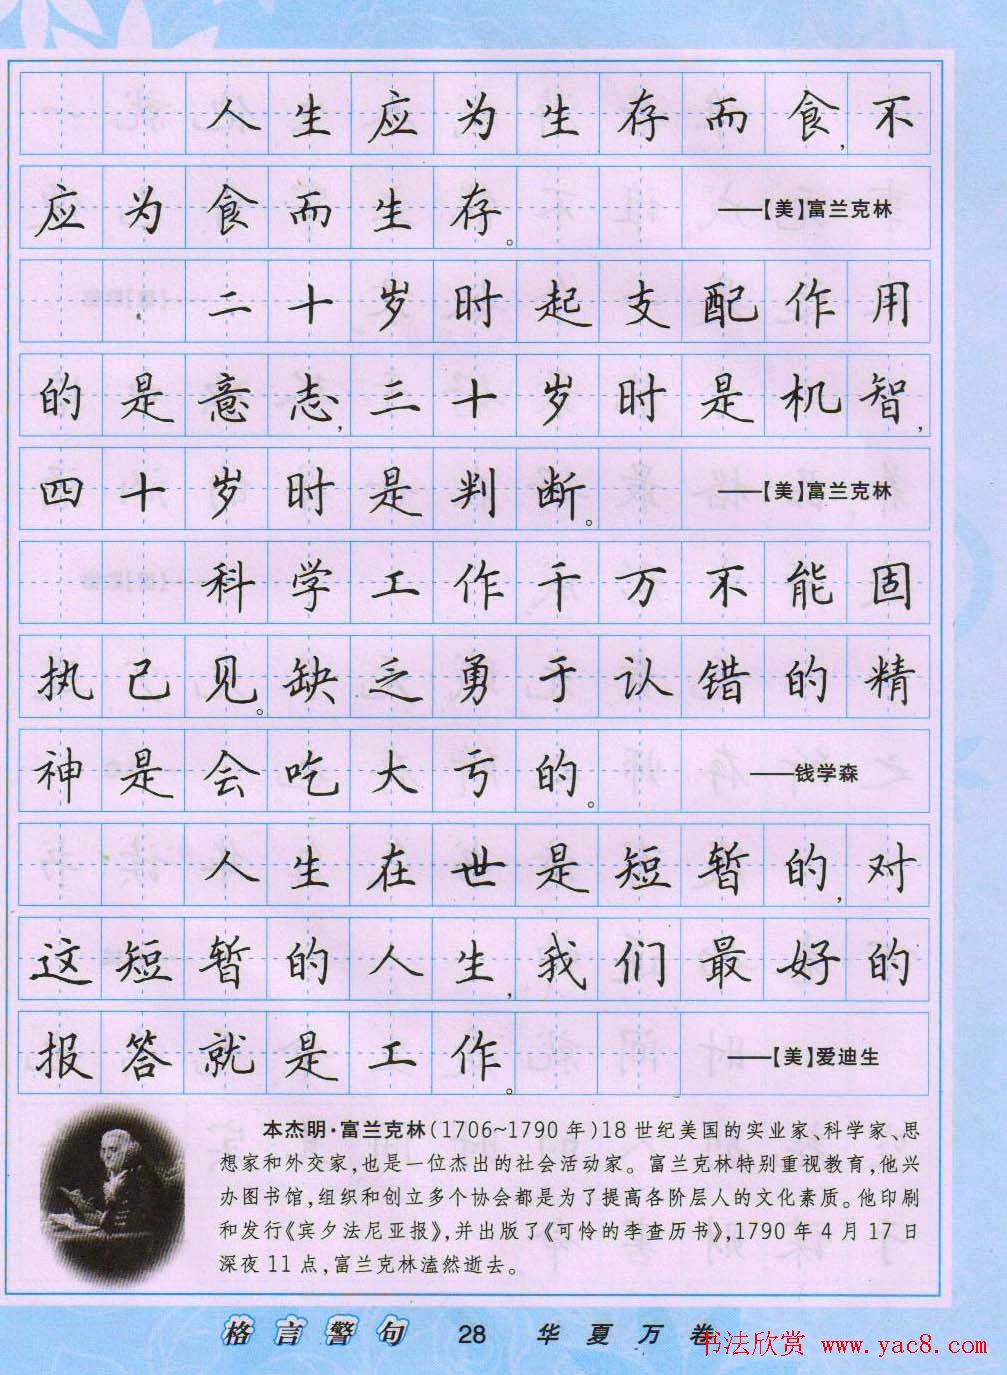 人生应为生存而食,不
应为食而生存。 ——【美】富兰克林
二十岁时起支配作用
的是意志,三十岁时是机智,
四十岁时是判断。 ——【美】富兰克林
科学工作千万不能固
执己见。缺乏勇于认错的精
神是会吃大亏的。 ——钱学森
人生在世是短暂的,对
这短暂的人生,我们最好的
报答就是工作。 ——【美】爱迪生
本杰明·富兰克林(1706~1790年)18世纪美国的实业家、科学家、思
想家和外交家,也是一位杰出的社会活动家。富兰克林特别重视教育,他兴
办图书馆,组织和创立多个协会都是为了提高各阶层人的文化素质。他印刷
和发行《宾夕法尼亚报》,并出版了《可怜的李查历书》,1790年4月17日
深夜11点,富兰克林溘然逝去。
格言警句 28 华夏万卷
书法欣赏 www.yac8.com